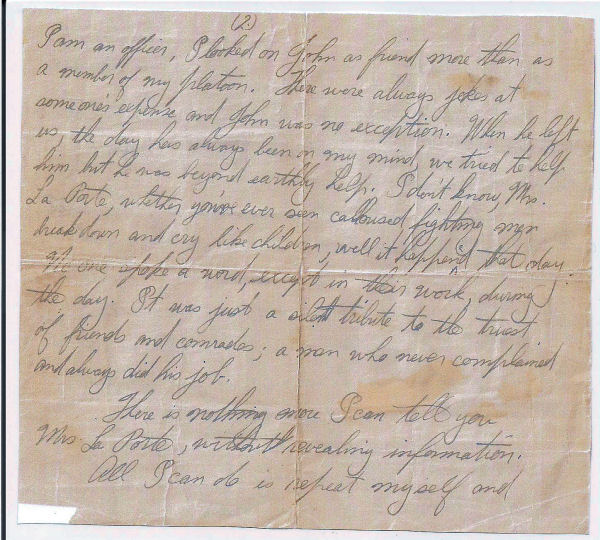 (2.)
I am an officer, I looked on John as friend more than as
a member of my platoon. There were always jokes at
someone's expense and John was no exception. When he left
us, the day has always been on my mind, we tried to help
him but he was beyond earthly help. I don't know, Mrs.
La Porte, whether you've ever seen calloused fighting men
break down and cry like children, well it happend that day.
No one spoke a word, except in their work, during
the day. It was just a silent tribute to the truest
of friends and comrades; a man who never complained
and always did his job.
There is nothing more I can tell you
Mrs. La Porte, without revealing information.
All I can do is repeat myself and